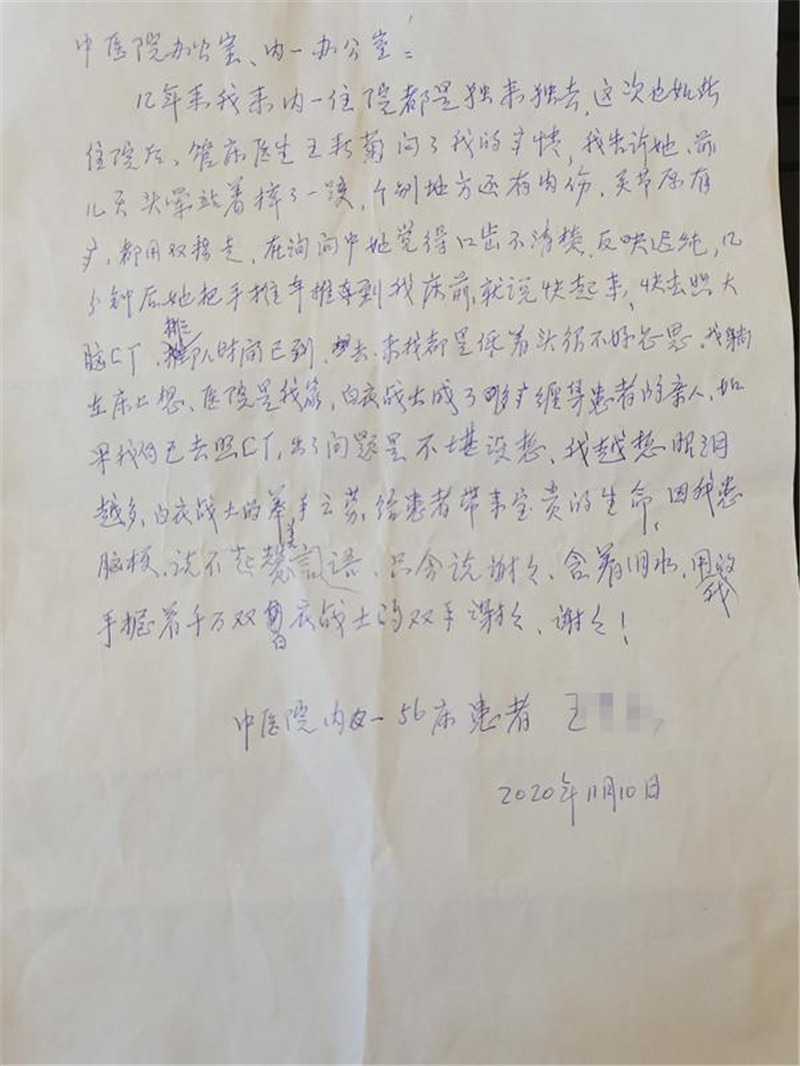 中医院办公室、内一办公室:
几年来我来内一住院都是独来独去,这次也如此
住院后、管床医生王新菊问了我的疒情,我告诉她、前
几天头晕站着摔了一跤,个别地方还有内伤,关节原有
疒,都用双拐走,在询问中她觉得口齿不清楚,反映迟纯,几
分钟后她把手推车推到我床前,就说快起来,快去照大
脑CT,排队时间已到,去来我都是低着头很不好意思,我躺
在床上想、医院是我家,白衣战士成了疒缠身患者的亲人,如
果我自己去照CT,出了问题是不堪设想、我越想眼泪
越多,白衣战士的举手之劳,给患者带来宝贵的生命,因我患
脑梗,说不起赞美词语、只会说谢谢、含着泪水,用我
手握着千万双白衣战士的双手谢谢、谢谢!
中医院内一56床患者 王
2020年11月10日